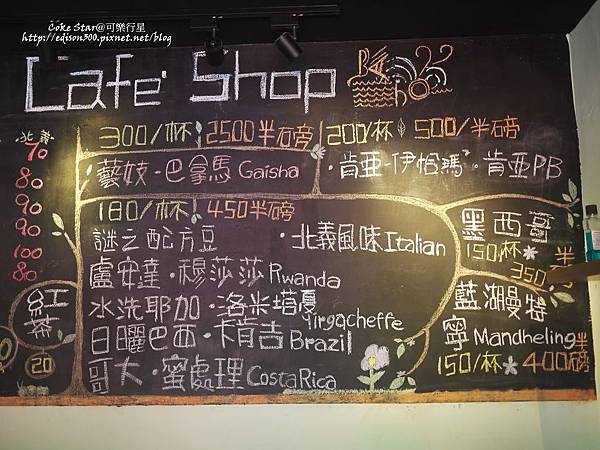 Coke Star@可樂行星
http://edison300.pixnet.net/blog
Cafe' Shop
300/杯 2500半磅
藝妓・巴拿馬 Gaisha
200/杯 500/半磅
・肯亞-伊恰瑪・肯亞PB
180/杯 450半磅
謎之配方豆 ・北義風味Italian
盧安達・穆莎莎 Rwanda
水洗耶加・洛米塔戛 Yirgacheffe
日曬巴西・卡肯吉 Brazil
哥大・蜜處理 CostaRica
黑西哥
150/杯
350半磅
藍湖曼特
寧 Mandheling
150/杯 400半磅
70
80
90
90
100
80
紅茶
20